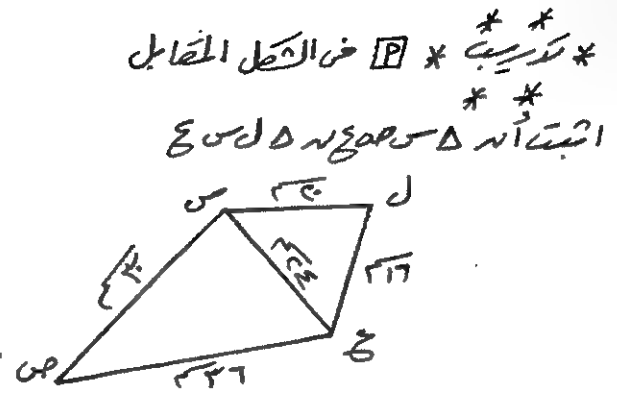 * تدريب * [P] فى الشكل المقابل
اثبت أن Δ س ص ع ~ Δ ل س ع
س
ل
٢٠سم
١٦سم
٢٤سم
٣٠سم
ع
٣٦سم
ص